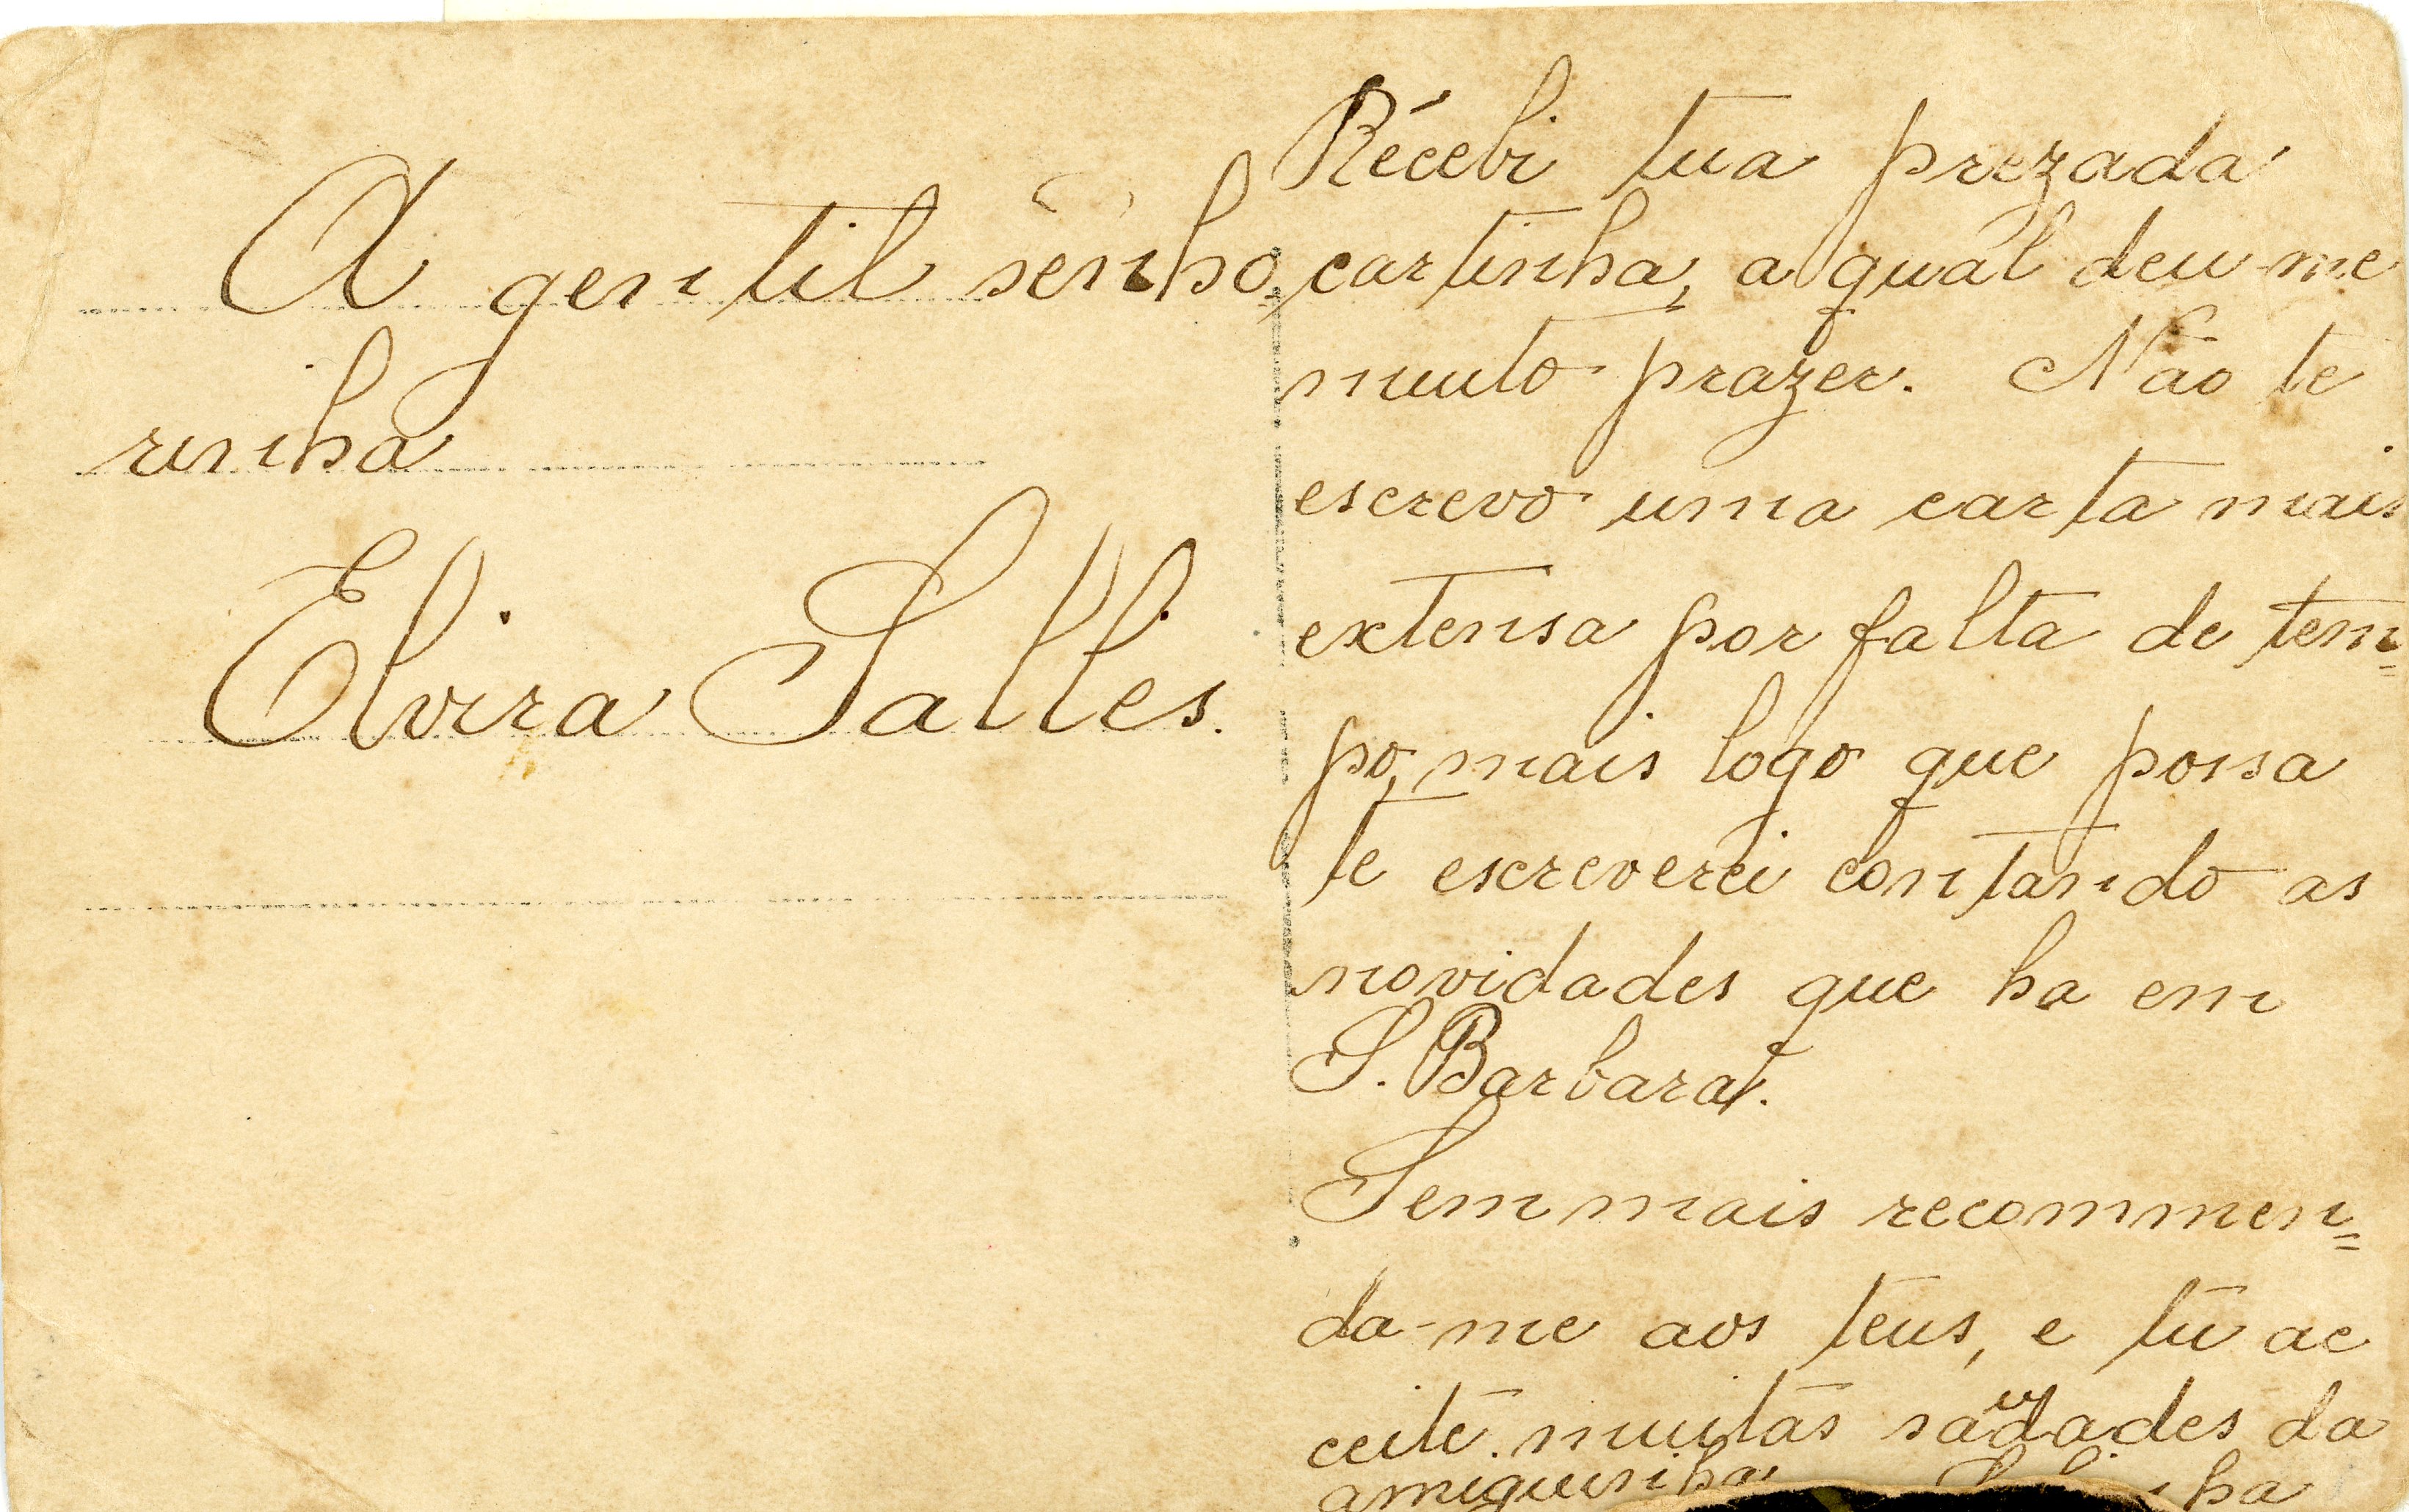 A gentil senho
rinha
Elvira Salles.
Récebi tua prezada
cartinha, a qual deu-me
muito prazer. Não te
escrevo uma carta mais
extensa por falta de tem=
po, mais logo que possa
te escreverei contando as
novidades que ha em
S. Barbara.
Sem mais recommen=
da-me aos teus, e tu ac
ceite muitas saudades da
amiguinha